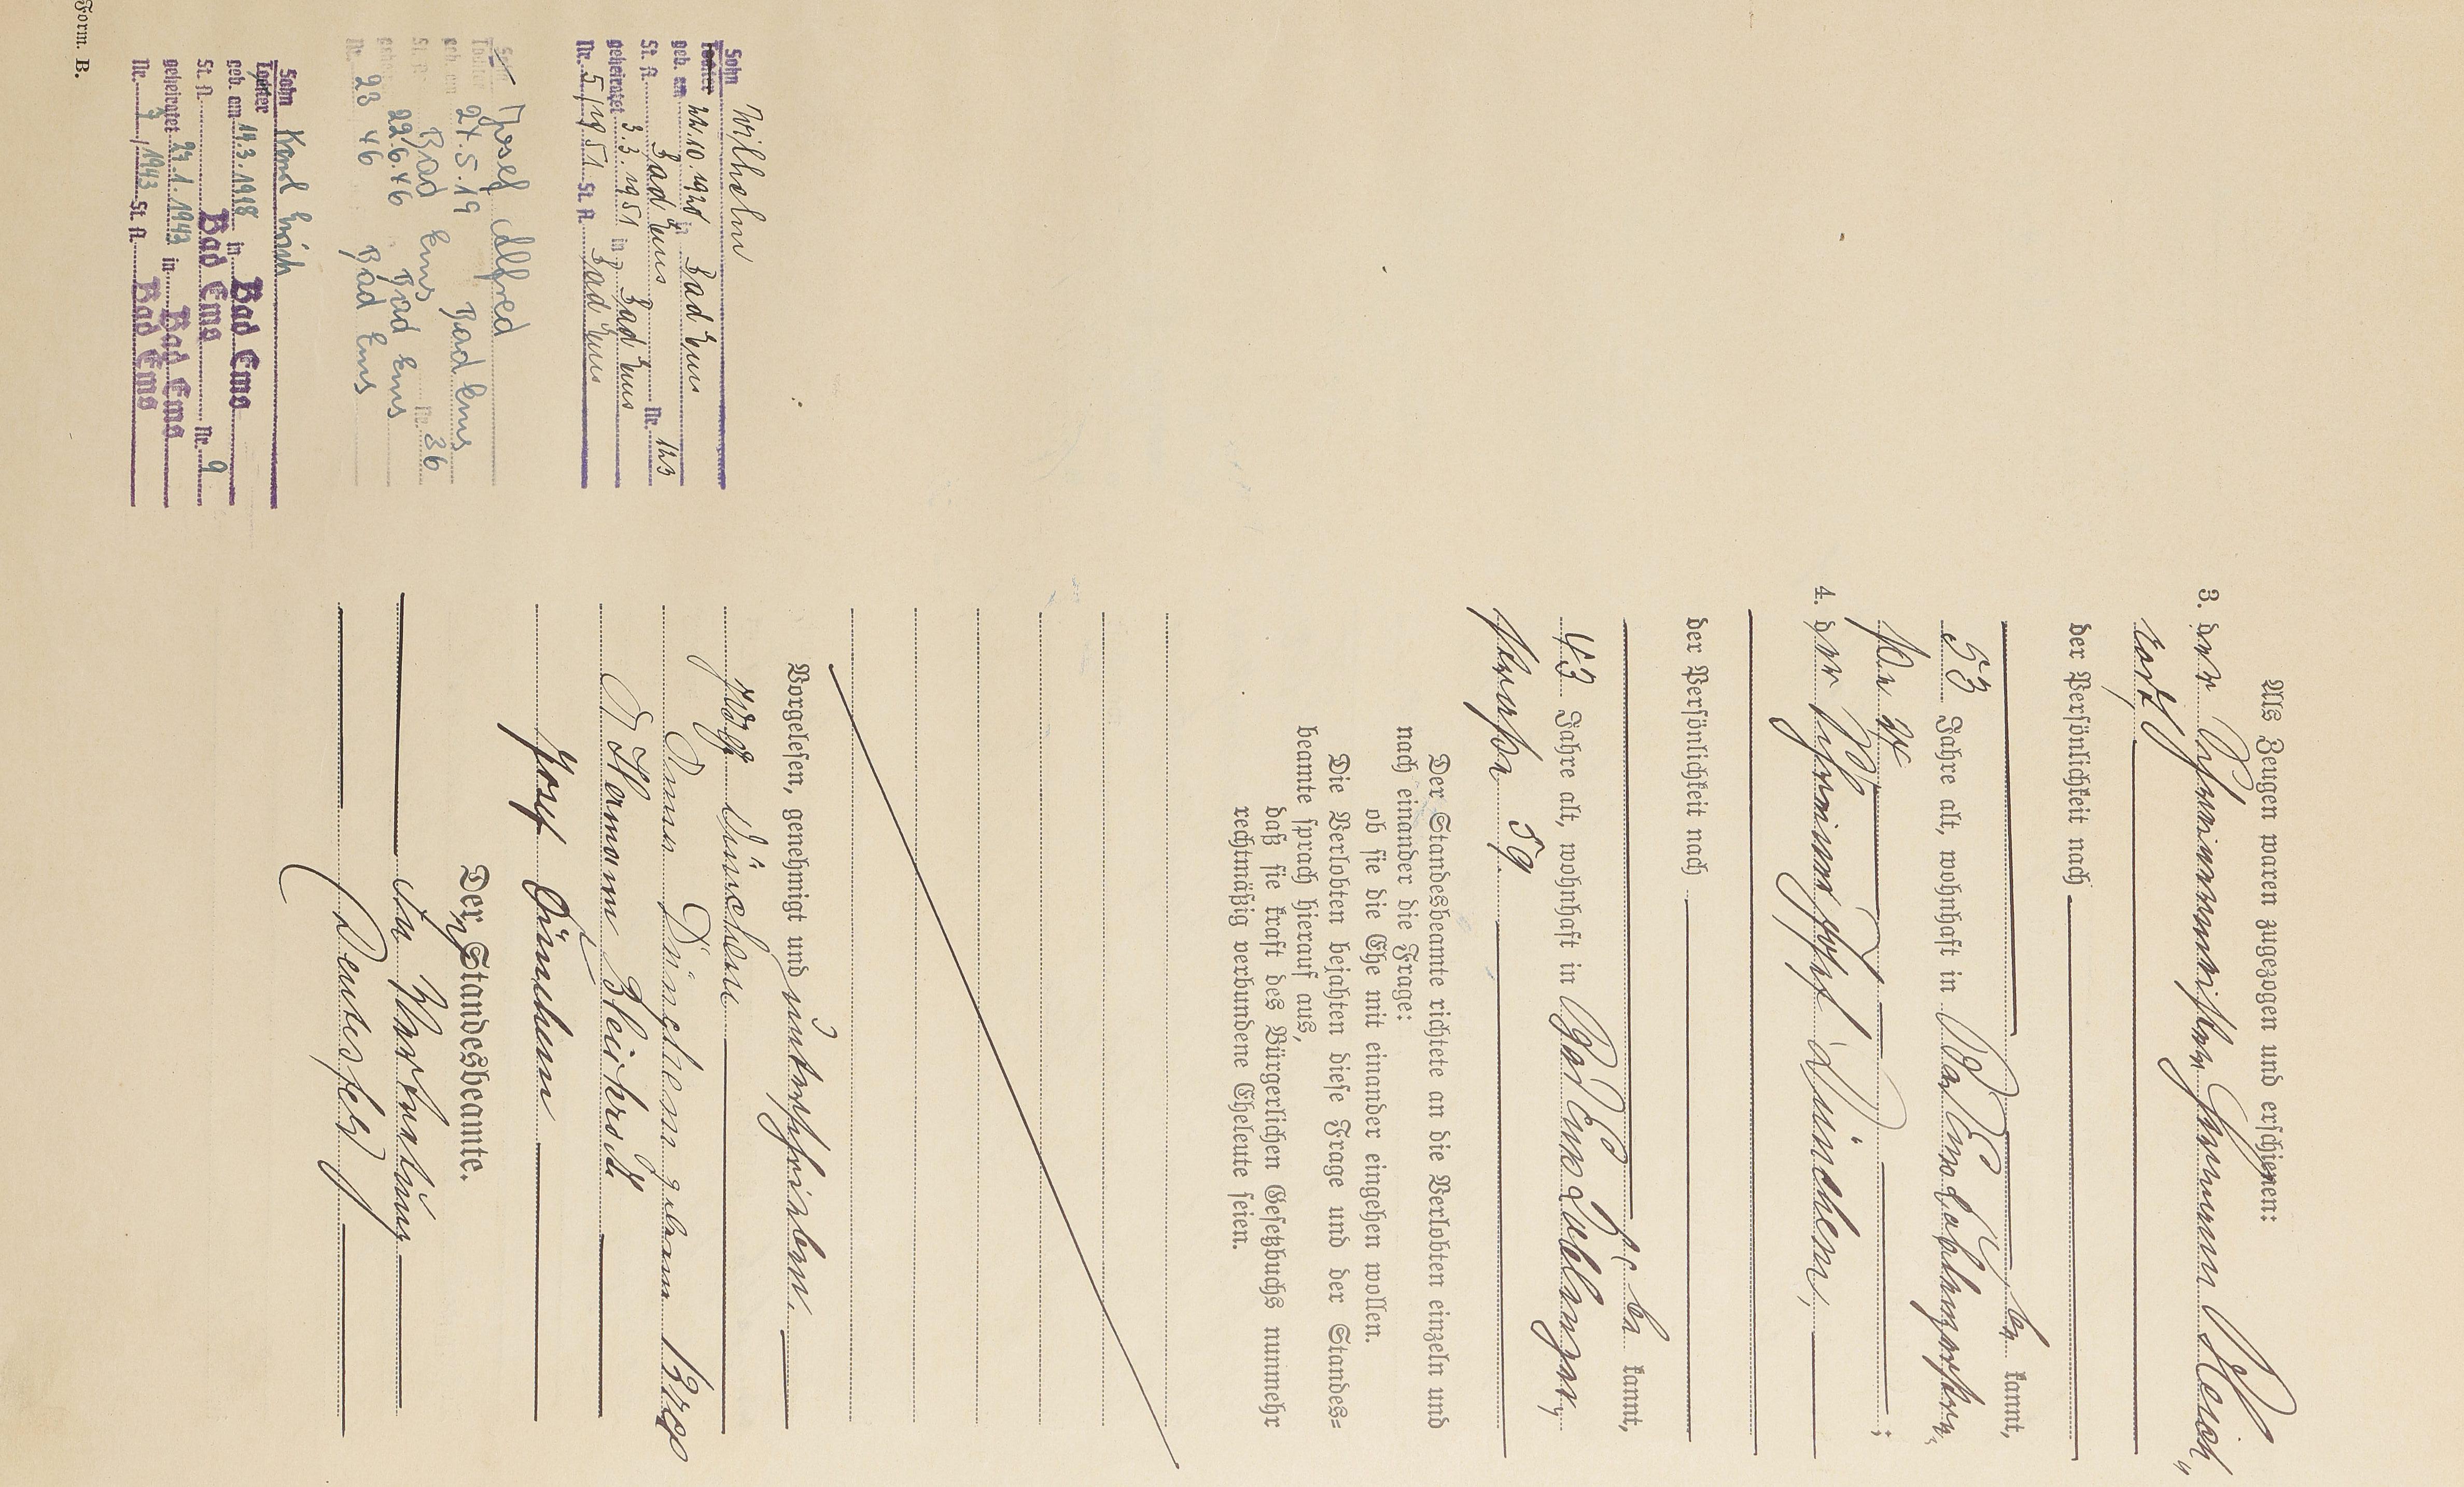 Als Zeugen waren zugezogen und erschienen:
3. der Schreinermeister Hermann Bleich-
rodt
der Persönlichkeit nach
be kannt,
53 Jahre alt, wohnhaft in Bad Ems, Coblenzerstra-
ße
4. der Josef Dünchem,
der Persönlichkeit nach
be kannt,
43 Jahre alt, wohnhaft in Bad Ems,
straße 59.
Der Standesbeamte richtete an die Verlobten einzeln und
nach einander die Frage:
ob sie die Ehe mit einander eingehen wollen.
Die Verlobten bejahten diese Frage und der Standes-
beamte sprach hierauf aus,
daß sie kraft des Bürgerlichen Gesetzbuchs nunmehr
rechtmäßig verbundene Eheleute seien.
Vorgelesen, genehmigt und unterschrieben.
Dünchem
Anna Dünchem geborene
Hermann Bleichrodt
Josef Dünchem
Der Standesbeamte.
In Vertretung
Wilhelm
Sohn
Tochter
geb. am 22.10.1920 in Bad Ems
St. A. Bad Ems Nr. 123
geheiratet 3.3.1951 in Bad Ems
Nr. 5/1951 St. A. Bad Ems
Josef Alfred
Sohn
Tochter
geb. am 27.5.19 Bad Ems
St. A. Bad Ems Nr. 36
22.6.46 Bad Ems
Nr. 23 46 Bad Ems
Karl Erich
Sohn
Tochter
geb. am 19.3.1918 in Bad Ems
St. A. Bad Ems Nr. 9
geheiratet 23.1.1943 in Bad Ems
Nr. 3/1943 St. A. Bad Ems
Form. B.